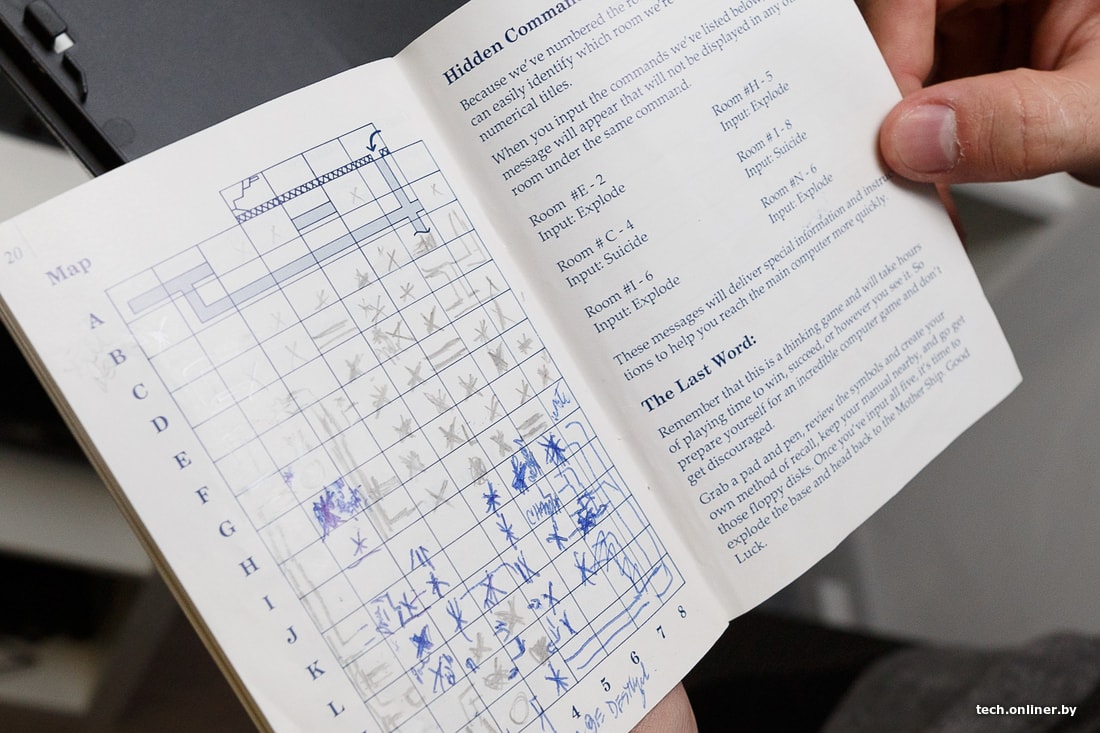 20
Map
A
B
C
D
E
F
G
H
I
J
K
L
4
5
6
7
8
BE DESTROYED
Hidden Comman
Because we've numbered the ro
can easily identify which room we're
numerical titles.
When you input the commands we've listed below
message will appear that will not be displayed in any o
room under the same command.
Room #E - 2
Input: Explode
Room # C - 4
Input: Suicide
Room #I - 6
Input: Explode
Room #H - 5
Input: Explode
Room # I - 8
Input: Suicide
Room #N - 6
Input: Explode
These messages will deliver special information and instru
tions to help you reach the main computer more quickly.
The Last Word:
Remember that this is a thinking game and will take hours
of playing time to win, succeed, or however you see it. So
prepare yourself for an incredible computer game and don't
get discouraged.
Grab a pad and pen, review the symbols and create your
own method of recall, keep your manual nearby, and go get
those floppy disks. Once you've input all five, it's time to
explode the base and head back to the Mother Ship. Good
Luck.
tech.onliner.by